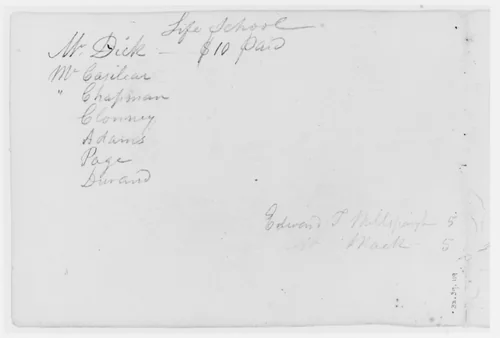 Life School
Mr. Dick — $10 Paid
Mr Casilear
" Chapman
Clonney
Adams
Page
Durand
Edward T 5
Mack 5